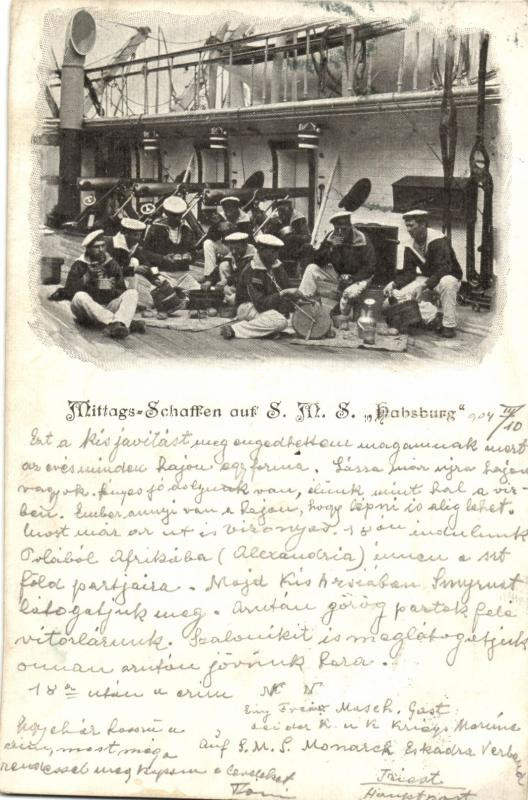 Mittags-Schaffen auf S. M. S. „Habsburg“ 904 IV/10
Ezt a kis javítást meg engedhettem magamnak mert
az evés minden hajón egyforma. Lássa már újra hajón
vagyok. jó dolgunk van, élünk mint hal a víz-
ben. Ember annyi van a hajón, hogy lépni is alig lehet.
most már az út is bizonyos. 18án indulunk
Polából Afrikába (Alexandria) innen a szt
föld partjaira. Majd Kis Ázsiában Smyrnát
látogatjuk meg. Azután görög partok felé
vitorlázunk. Szalonikit is meglátogatjuk
onnan azután jövünk haza.
18a után a czim N N
Einj Freiw Masch. Gast
Ugyebár hosszú a bei der K. u K Kriegs Marine
czim, most maga auf S. M. S. Monarch Eskadra Verband
rendessel meg kapom a leveleket Triest
Toni Hauptpost